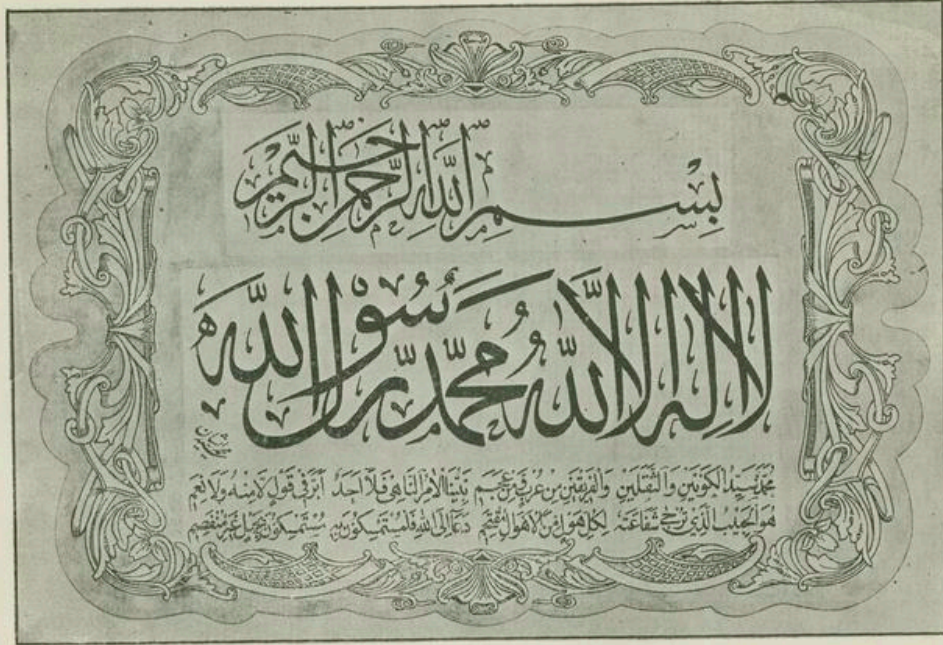 بِسْمِ اللهِ الرَّحْمٰنِ الرَّحِيْمِ
لَا اِلٰهَ اِلَّا اللهُ مُحَمَّدٌ رَسُوْلُ اللهِ
مُحَمَّدٌ سَيِّدُ الْكَوْنَيْنِ وَالثَّقَلَيْنِ وَالْفَرِيْقَيْنِ مِنْ عُرْبٍ وَمِنْ عَجَمِ نَبِيُّنَا الْآمِرُ النَّاهِيْ فَلَا اَحَدٌ اَبَرَّ فِيْ قَوْلِ لَا مِنْهُ وَلَا نَعَمِ
هُوَ الْحَبِيْبُ الَّذِيْ تُرْجٰى شَفَاعَتُهُ لِكُلِّ هَوْلٍ مِنَ الْاَهْوَالِ مُقْتَحَمِ دَعَا اِلَى اللهِ فَالْمُسْتَمْسِكُوْنَ بِهِ مُسْتَمْسِكُوْنَ بِحَبْلٍ غَيْرِ مُنْفَصِمِ